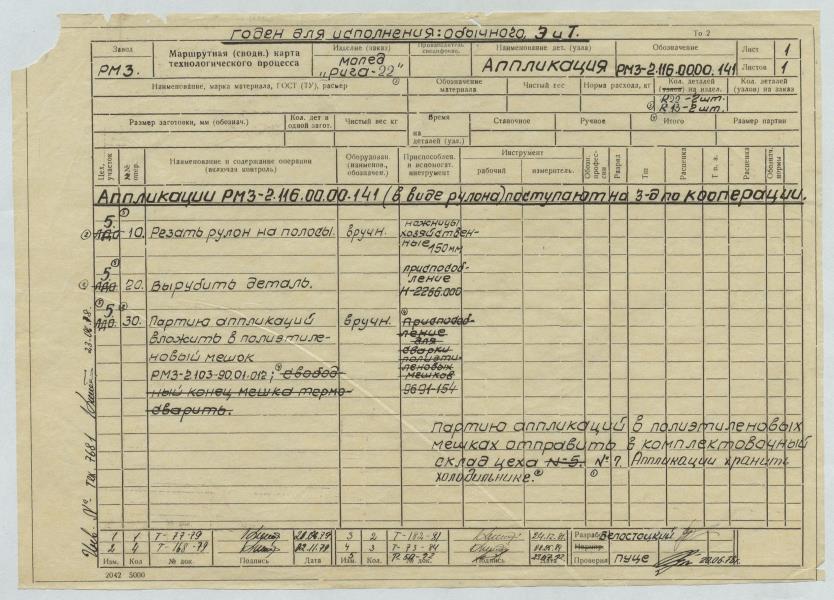 Годен для исполнения: обычного, Э и Т.
То 2
Завод
РМЗ.
Маршрутная (сводн.) карта
технологического процесса
Изделие (заказ)
мопед
"Рига-22"
Наименование дет. (узла)
Аппликация
Обозначение
РМЗ-2.116.00.00.141
Лист 1
Листов 1
Наименование, марка материала, ГОСТ (ТУ), размер
Обозначение
материала
Чистый вес
Норма расхода, кг
Кол. деталей
(узлов) на издел.
R22-2шт.
R13-2шт.
Кол. деталей
(узлов) на заказ
Размер заготовки, мм (обознач.)
Кол. дет в
одной загот.
Чистый вес кг
Время
на
деталей (узл.)
Станочное
Ручное
Итого
Размер партии
Цех, участок
№№ опер.
Наименование и содержание операции
(включая контроль)
Оборудован.
(наименов.,
обозначен.)
Приспособлен.
и вспомогат.
инструмент
Инструмент
рабочий
измеритель.
Обозн. профессии
Разряд
Тш
Расценка
Т п. з.
Расценка
Обознач. нормы
Аппликации РМЗ-2.116.00.00.141 (в виде рулона) поступают на з-д по кооперации.
5
10. Резать рулон на полосы. вручн. ножницы
хозяйствен-
ные 150мм
5
20. Вырубить деталь. приспособ-
ление
Н-2266.000
5
30. Партию аппликаций вручн. Приспособ-
вложить в полиэтиле- ление
новый мешок для
РМЗ-2.103-90.01.012; свобод- сварки
ный конец мешка термо- полиэти-
сварить. леновых
мешков
9691-154
Партию аппликаций в полиэтиленовых
мешках отправить в комплектовочный
склад цеха №5. №7. Аппликации хранить
холодильнике.
23.06.78.
1 1 Т-77-79 3 2 Т-182-81
2 4 Т-168-79 02.11.79 4 3 Т-73-84
Изм. Кол № док. Подпись Дата Изм. Кол. № док. Подпись Дата
Разраб. Белостоцкий
Проверил Пуце 20.06.78г.
2042 5000